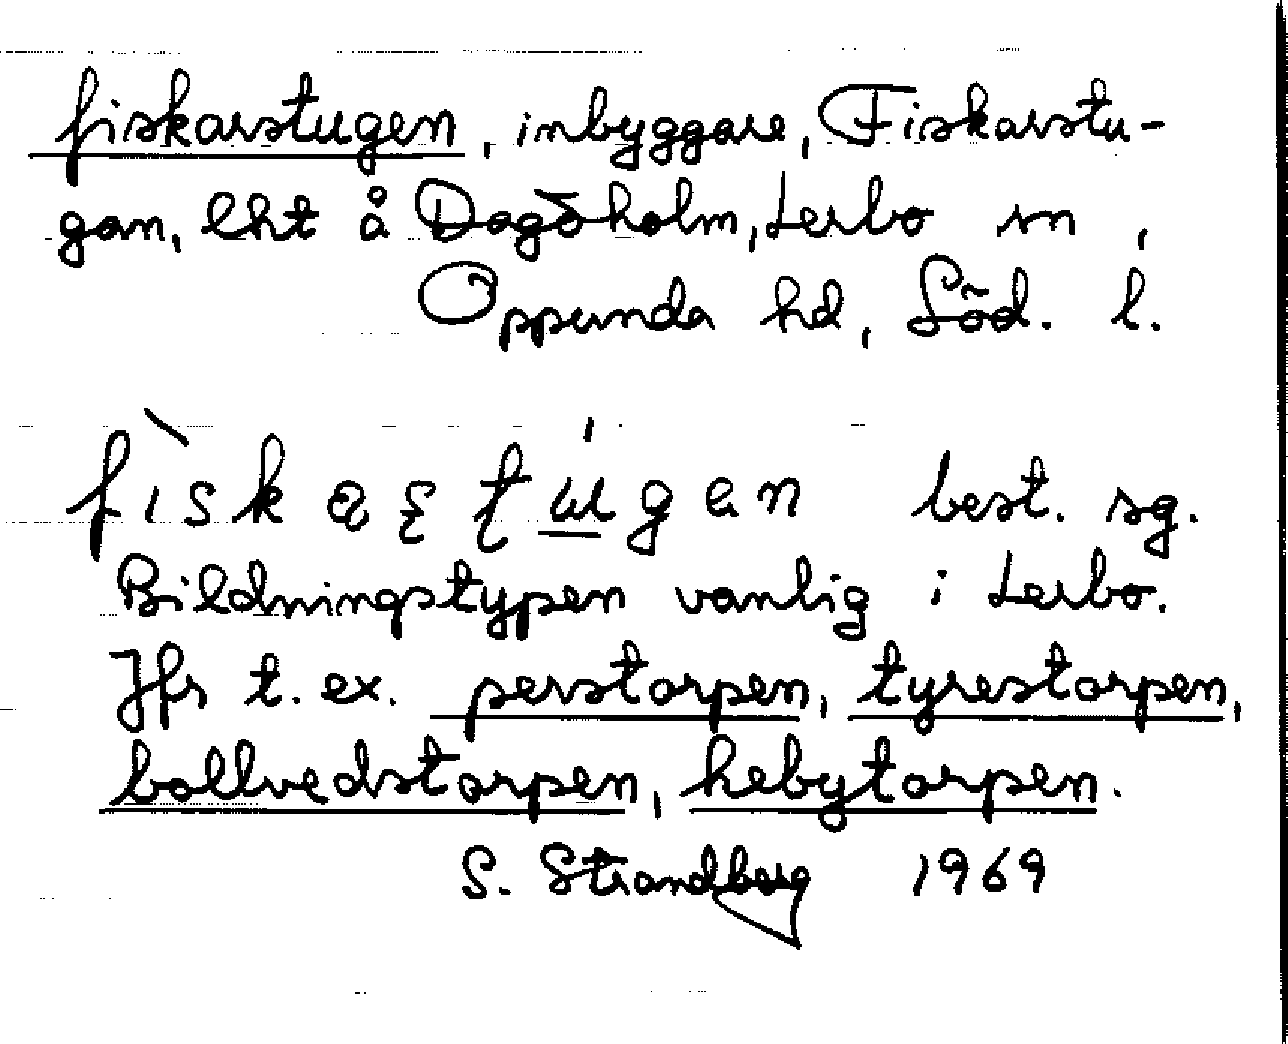 fiskarstugen, inbyggare, Fiskarstu-
gan, lht å Dagöholm, Lerbo sn,
Oppunda hd, Söd. l.
best. sg.
Bildningstypen vanlig i Lerbo.
Jfr t. ex. perstorpen, tyrestorpen,
bollvedstorpen, hebytorpen.
S. Strandberg 1969